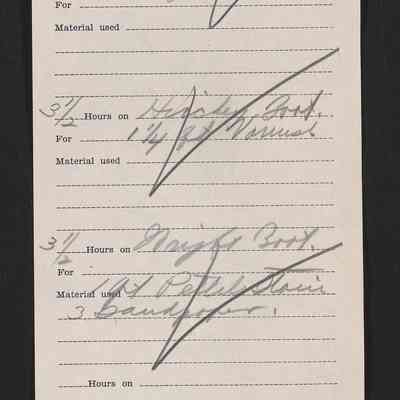 For
Material used
3 1/2 Hours on Hinckley Boat.
For 1 1/4 qt Varnish
Material used
3 1/2 Hours on Wright Boat.
For
Material used 1 qt Stain
3 Sandpaper.
Hours on